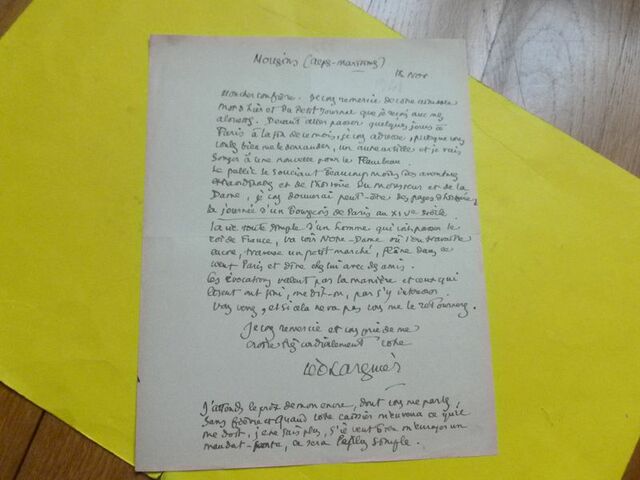 Mougins (Alpes-Maritimes)
16 Nov
Mon cher confrère. Je vous remercie de votre aimable
mot d'hier et du Petit Journal que je reçois avec mes
Devant aller passer quelques jours à
Paris à la fin de ce mois, je vous adresse, puisque vous
voulez bien me le demander, un autre article et je vais
songer à une nouvelle pour le Flambeau.
Le public se souciant beaucoup moins des aventures
et de l'histoire du monsieur et de la
Dame, je vous donnerai peut-être des pages d'histoire,
la journée d'un Bourgeois de Paris au XIVe siècle.
La vie toute simple d'un homme qui voit passer le
roi de France, va voir Notre-Dame où l'on travaille
encore, traverse un petit marché, flâne dans ce
vieux Paris et dîne chez lui avec des amis.
Ces évocations valent par la manière et ceux qui
lisent ont fini, me dit-on, par s'y intéresser.
Vous verrez, et si cela ne va pas vous me le retournerez.
Je vous remercie et vous prie de me
croire très cordialement votre
Léo Larguier
J'attends le prix de mon encre, dont vous me parlez
et quand votre caissier m'enverra ce qu'il
me doit, je ne sais plus, s'il veut bien m'envoyer un
mandat-carte, ce sera le plus simple.